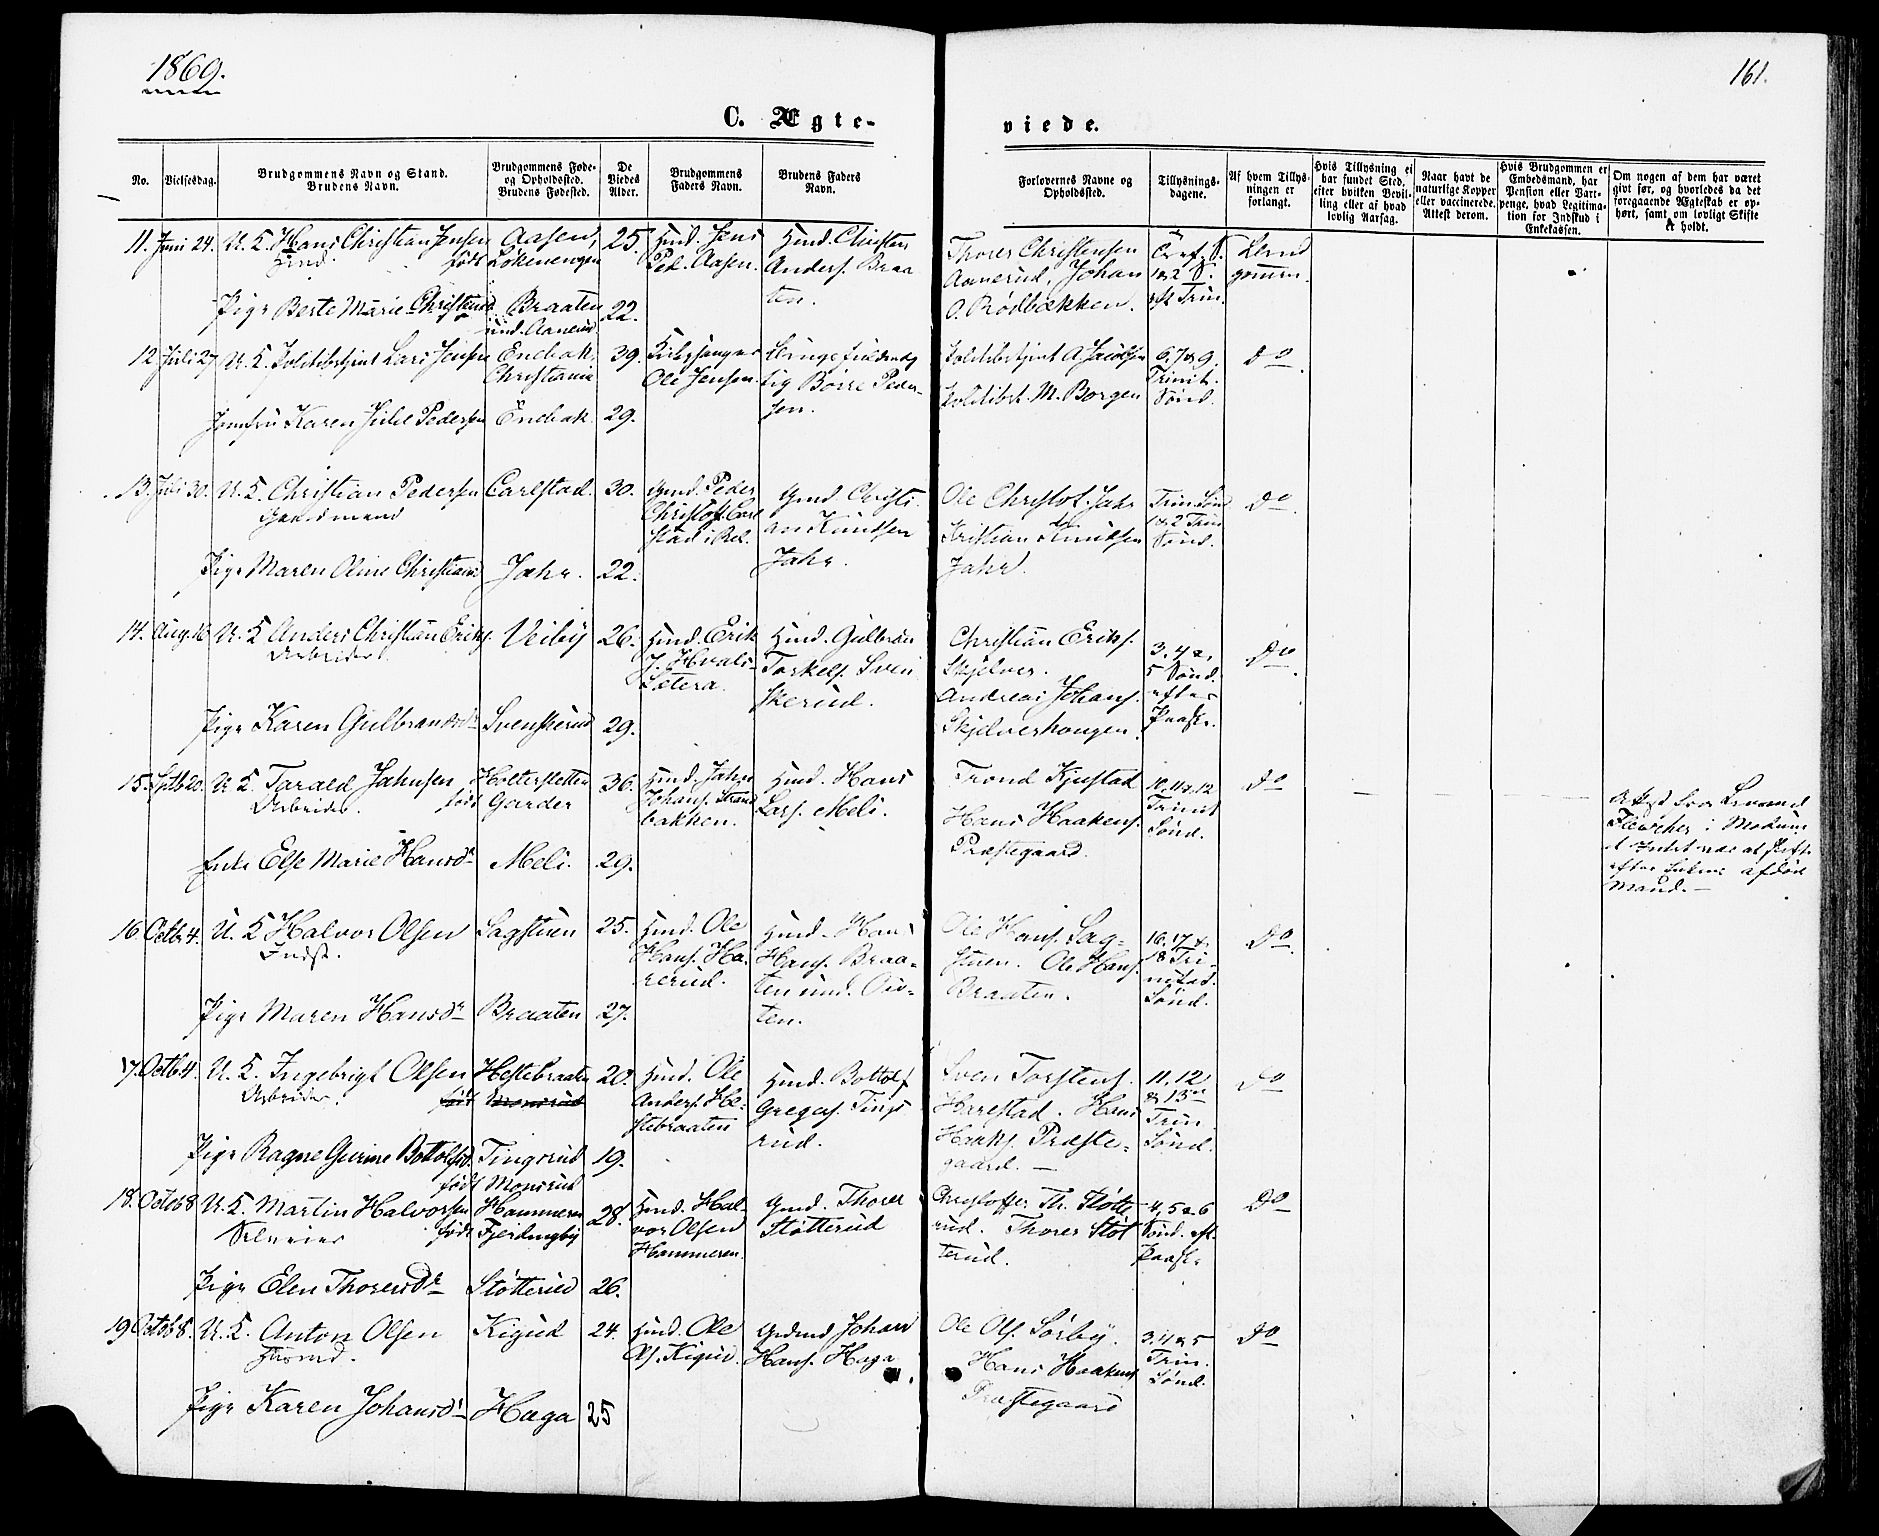 1869.
161.
C. Ægte-
viede.
No.
Vielsesdag.
Brudgommens Navn og Stand.
Brudens Navn.
Brudgommens Føde-
og Opholdssted.
Brudens Fødested.
De
Viedes
Alder.
Brudgommens
Faders Navn.
Brudens Faders
Navn.
Forlovernes Navne og
Opholdssted.
Tillysnings-
dagene.
Af hvem Tillys-
ningen er
forlangt.
Hvis Tillysning ei
har fundet Sted,
efter hvilken Bevil-
ling eller af hvad
lovlig Aarsag.
Naar havt de
naturlige Kopper
eller vaccinerede.
Attest derom.
Hvis Brudgommen er
Embedsmand, har
Pension eller Var-
penge, hvad Legitima-
tion for Indskud i
Enkekassen.
Om nogen af dem har været
givt før, og hvorledes da det
foregaaende Ægteskab er op-
hørt, samt om lovligt Skifte
er holdt.
11. Juni 24. U. K. Hans Christian Jensen
født
Aasen,
Løkenengen
25.
Husmd. Jens
Ped. Aasen.
Husmd. Christen
Anders. Braa
ten.
Thorer Christensen
Aanerud, Johan
O. Rødbækken.
1 & 2 S.
eft Trin.
Brud
gommen.
Pige Berte Marie Christensd.
Braaten
und. Aanerud
22.
12. Juli 27. U. K. Politibetjent Lars Jensen
Enebak,
Christiania
39.
Kirkesanger
Ole Jensen.
Børre Peder-
sen.
Politibetjent A. Jacobsen
Politibet. M. Borgen
6, 7 & 9,
Trinit.
Sønd.
Do
Jomfru Karen Julie Pedersen
Enebak.
29.
13. Juli 30. U. K. Christian Pedersen
Gaardmand
Carlstad.
30.
Gmd. Peder
Christof. Carl
stad i Rel.
Gmd. Christi
an Knudsen
Jahr.
Ole Christof. Jahr
Kristian Knudsen
Jahr.
Trin. Sønd
1 & 2 Trin
Sønd.
Do
Pige Maren Oline Christiansd
Jahr.
22.
14. Aug. 16 U. K. Anders Christian Eriks.
Arbeider.
Veiby
26.
Husmd. Erik
J. Hvals-
Sætera.
Husmd. Gulbran
Torkels. Sven
skerud.
Christian Eriks.
Skjelver.
Andreas Johans.
Skjelverhougen.
3. 4 &
5 Sønd.
efter
Paaske.
Do
Pige Karen Gulbransdr
Svenskerud
29.
15. Septb 20. U. K. Tarald Jahnsen
Arbeider.
født
Holterstetten
Garder
36.
Husmd. Jahn
Johans. Strand
bakken.
Husmd. Hans
Lars. Meli.
Trond Kjustad
Hans Haakens.
Præstegaard.
10. 11 & 12
Trinit
Sønd.
Do
Attest fra Lensmand
i Modum
at Intet var at skifte
efter hendes afdøde
Mand. —
Enke Else Marie Hansdr
Meli.
29.
16. Octb 4. U. K. Halvor Olsen
Indst.
Sagstuen
25.
Husmd. Ole
Hans. Ha-
rerud.
Husmd. Hans
Hans. Braa-
ten und. Ous-
ten.
Ole Hans. Sag-
stuen. Ole Hans.
Braaten.
16, 17 &
18 Tri-
nitat.
Sønd.
Do
Pige Maren Hansdr
Braaten
27.
17. Octb. 4. U. K. Ingebrigt Olsen
Arbeider.
født
Hestebraaten
Monsrud
20.
Husmd. Ole
Anders. He-
stebraaten
Husmd. Bottolf
Gregers. Tings
rud.
Sven Torstens.
Harestad. Hans
Haaks. Præste-
gaard. —
11, 12
& 13de
Trin.
Sønd.
Do
Pige Ragne Gurine Bottolfsd.
født
Tingsrud
Monsrud
19.
18. Octob 8 U. K. Martin Halvorsen
Selveier
født
Hammeren
Fjerdingby
28.
Husmd. Hal-
vor Olsen
Hammeren.
Gmd. Thorer
Støtterud
Christoffer Th. Støtte
rud. Thorer Støt
terud.
4, 5 & 6
Sønd. eft.
Paaske
Do
Pige Elen Thorersdr
Støtterud
26.
19 Octob 8. U. K. Anton Olsen
Husmd.
Kigud
24.
Husmd. Ole
Ols. Kigud.
Grdmd Johan
Hans. Haga
Ole Ols. Sørby.
Hans Haakens
Præstegaard
3, 4 & 5
Trin.
Sønd.
Do
Pige Karen Johansdr
Haga
25